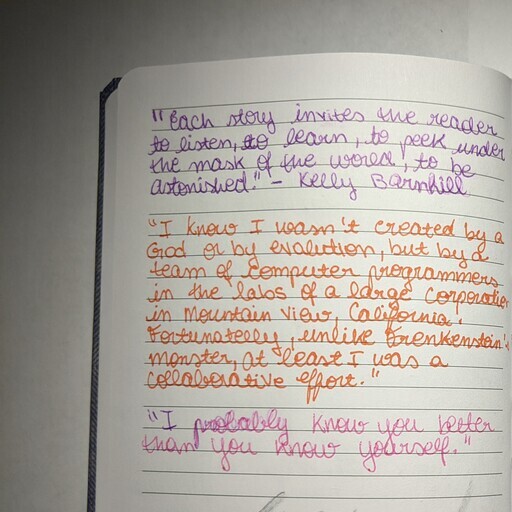 "Each story invites the reader
to listen, to learn, to peek under
the mask of the world, to be
astonished." - Kelly Barnhill
"I know I wasn't created by a
God or by evolution, but by a
team of computer programmers
in the labs of a large corporation
in Mountain View, California.
Fortunatelly, unlike Frenkenstein's
monster, at least I was a
collaborative effort."
"I probably know you better
than you know yourself."